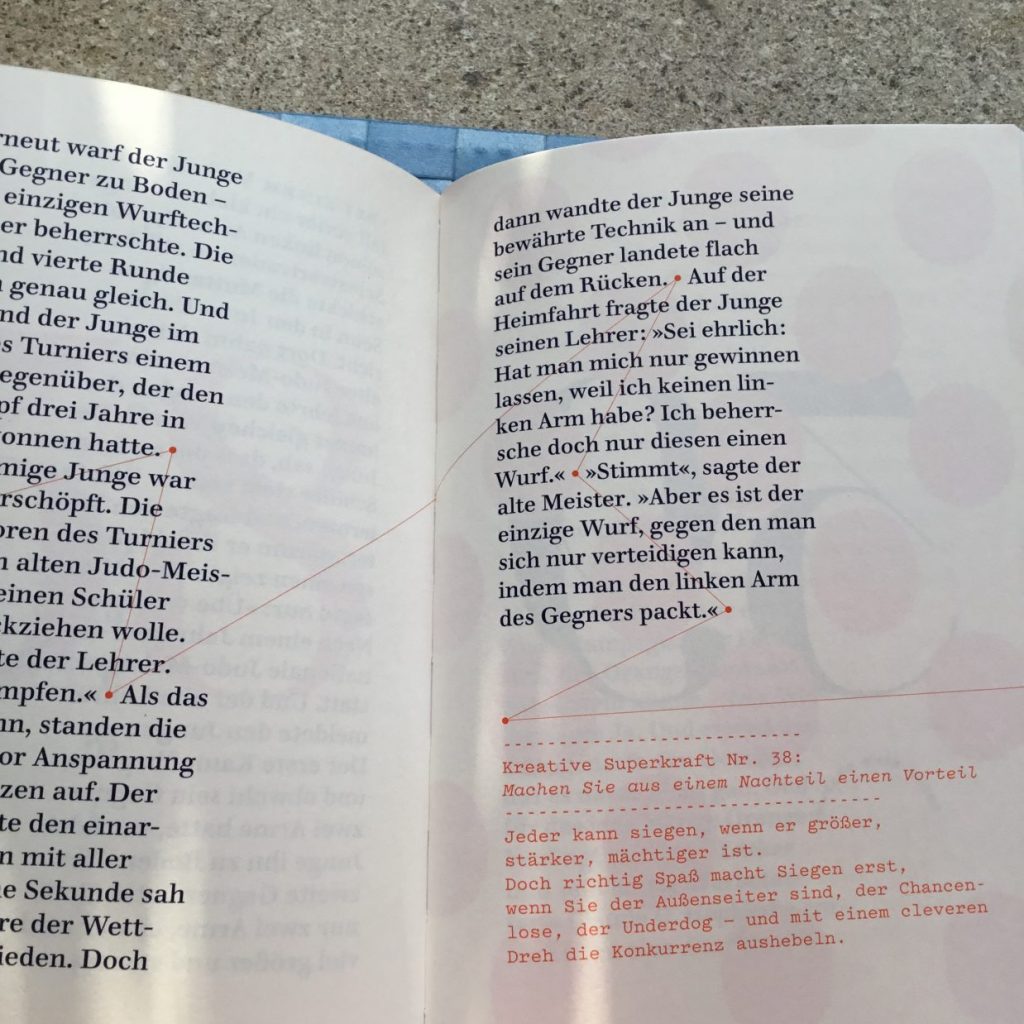 neut warf der Junge
Gegner zu Boden –
einzigen Wurftech-
er beherrschte. Die
nd vierte Runde
genau gleich. Und
nd der Junge im
s Turniers einem
egenüber, der den
pf drei Jahre in
onnen hatte.
mige Junge war
rschöpft. Die
oren des Turniers
n alten Judo-Meis-
einen Schüler
kziehen wolle.
te der Lehrer.
mpfen.« Als das
nn, standen die
or Anspannung
zen auf. Der
te den einar-
n mit aller
ne Sekunde sah
re der Wett-
ieden. Doch
dann wandte der Junge seine
bewährte Technik an – und
sein Gegner landete flach
auf dem Rücken. Auf der
Heimfahrt fragte der Junge
seinen Lehrer: »Sei ehrlich:
Hat man mich nur gewinnen
lassen, weil ich keinen lin-
ken Arm habe? Ich beherr-
sche doch nur diesen einen
Wurf.« »Stimmt«, sagte der
alte Meister. »Aber es ist der
einzige Wurf, gegen den man
sich nur verteidigen kann,
indem man den linken Arm
des Gegners packt.«
Kreative Superkraft Nr. 38:
Machen Sie aus einem Nachteil einen Vorteil
Jeder kann siegen, wenn er größer,
stärker, mächtiger ist.
Doch richtig Spaß macht Siegen erst,
wenn Sie der Außenseiter sind, der Chancen-
lose, der Underdog – und mit einem cleveren
Dreh die Konkurrenz aushebeln.